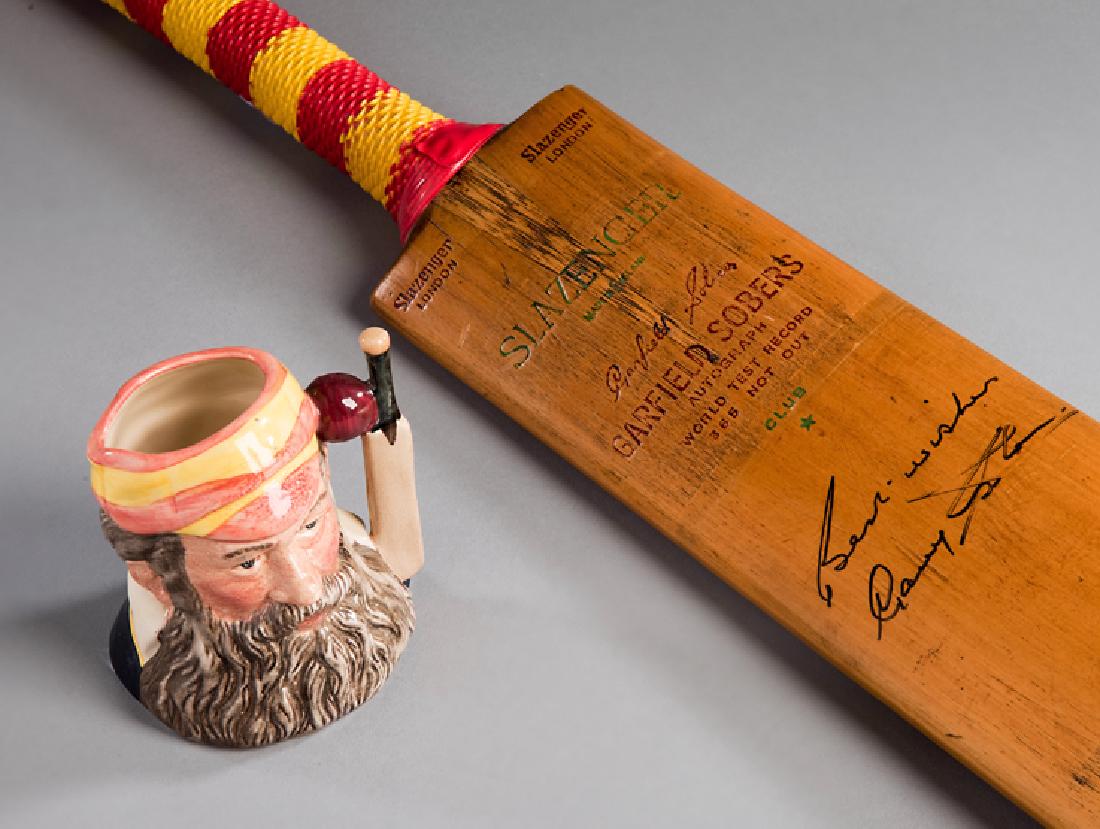 Slazenger
LONDON
Slazenger
LONDON
SLAZENGER
MADE IN ENGLAND
Garfield Sobers
GARFIELD SOBERS
AUTOGRAPH
WORLD TEST RECORD
365 NOT OUT
CLUB
Best wishes
Garry